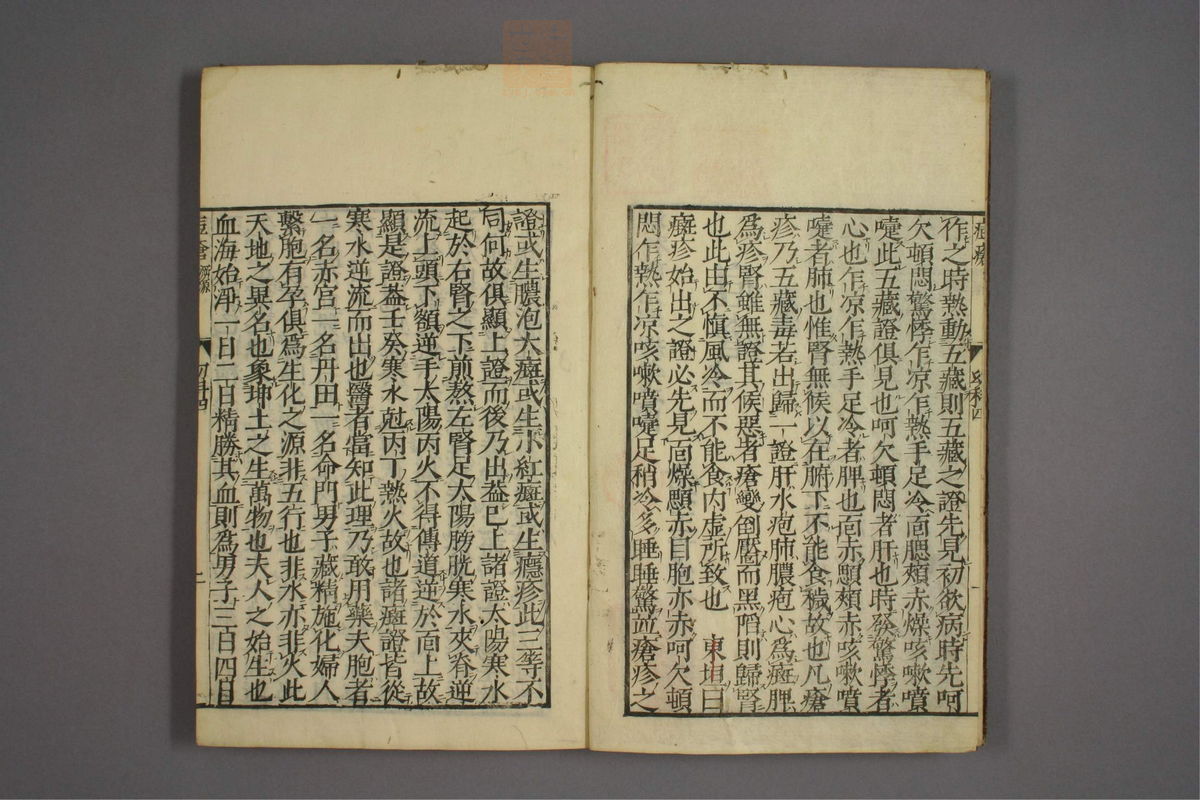 作之時熱動五藏則五藏之證先見初欲病時先呵
欠頓悶驚悸乍凉乍熱手足冷面腮頰赤燥咳嗽噴
嚏此五藏證俱見也呵欠頓悶者肝也時發驚悸者
心也乍凉乍熱手足冷者脾也面赤顋頰赤咳嗽噴
嚏者肺也惟腎無候以在腑下不能食穢故也凡瘡
疹乃五藏毒若出歸一證肝水疱肺膿疱心爲癍脾
爲疹腎雖無證其候惡者瘡變倒黶而黑陷則歸腎
也此由不愼風冷而不能食内虚所致也 東垣曰
癍疹始出之證必先見面燥顋赤目胞亦赤呵欠頓
悶乍熱乍凉咳嗽噴嚏足稍冷多睡睡驚並瘡疹之
證或生膿泡大癍或生小紅癍或生癮疹此三等不
同何故俱顯上證而後乃出蓋已上諸證太陽寒水
起於右腎之下煎熬左腎足太陽膀胱寒水夾脊逆
流上頭下額逆手太陽丙火不得傳道逆於面上故
顯是證蓋壬癸寒水尅丙丁熱火故也諸癍證皆從
寒水逆流而出也醫者當知此理乃敢用藥夫胞者
一名赤宮一名丹田一名命門男子藏精施化婦人
繫胞有孕俱爲生化之源非五行也非水亦非火此
天地之異名也象坤土之生萬物也夫人之始生也
血海始淨一日二日精勝其血則爲男子三日四日